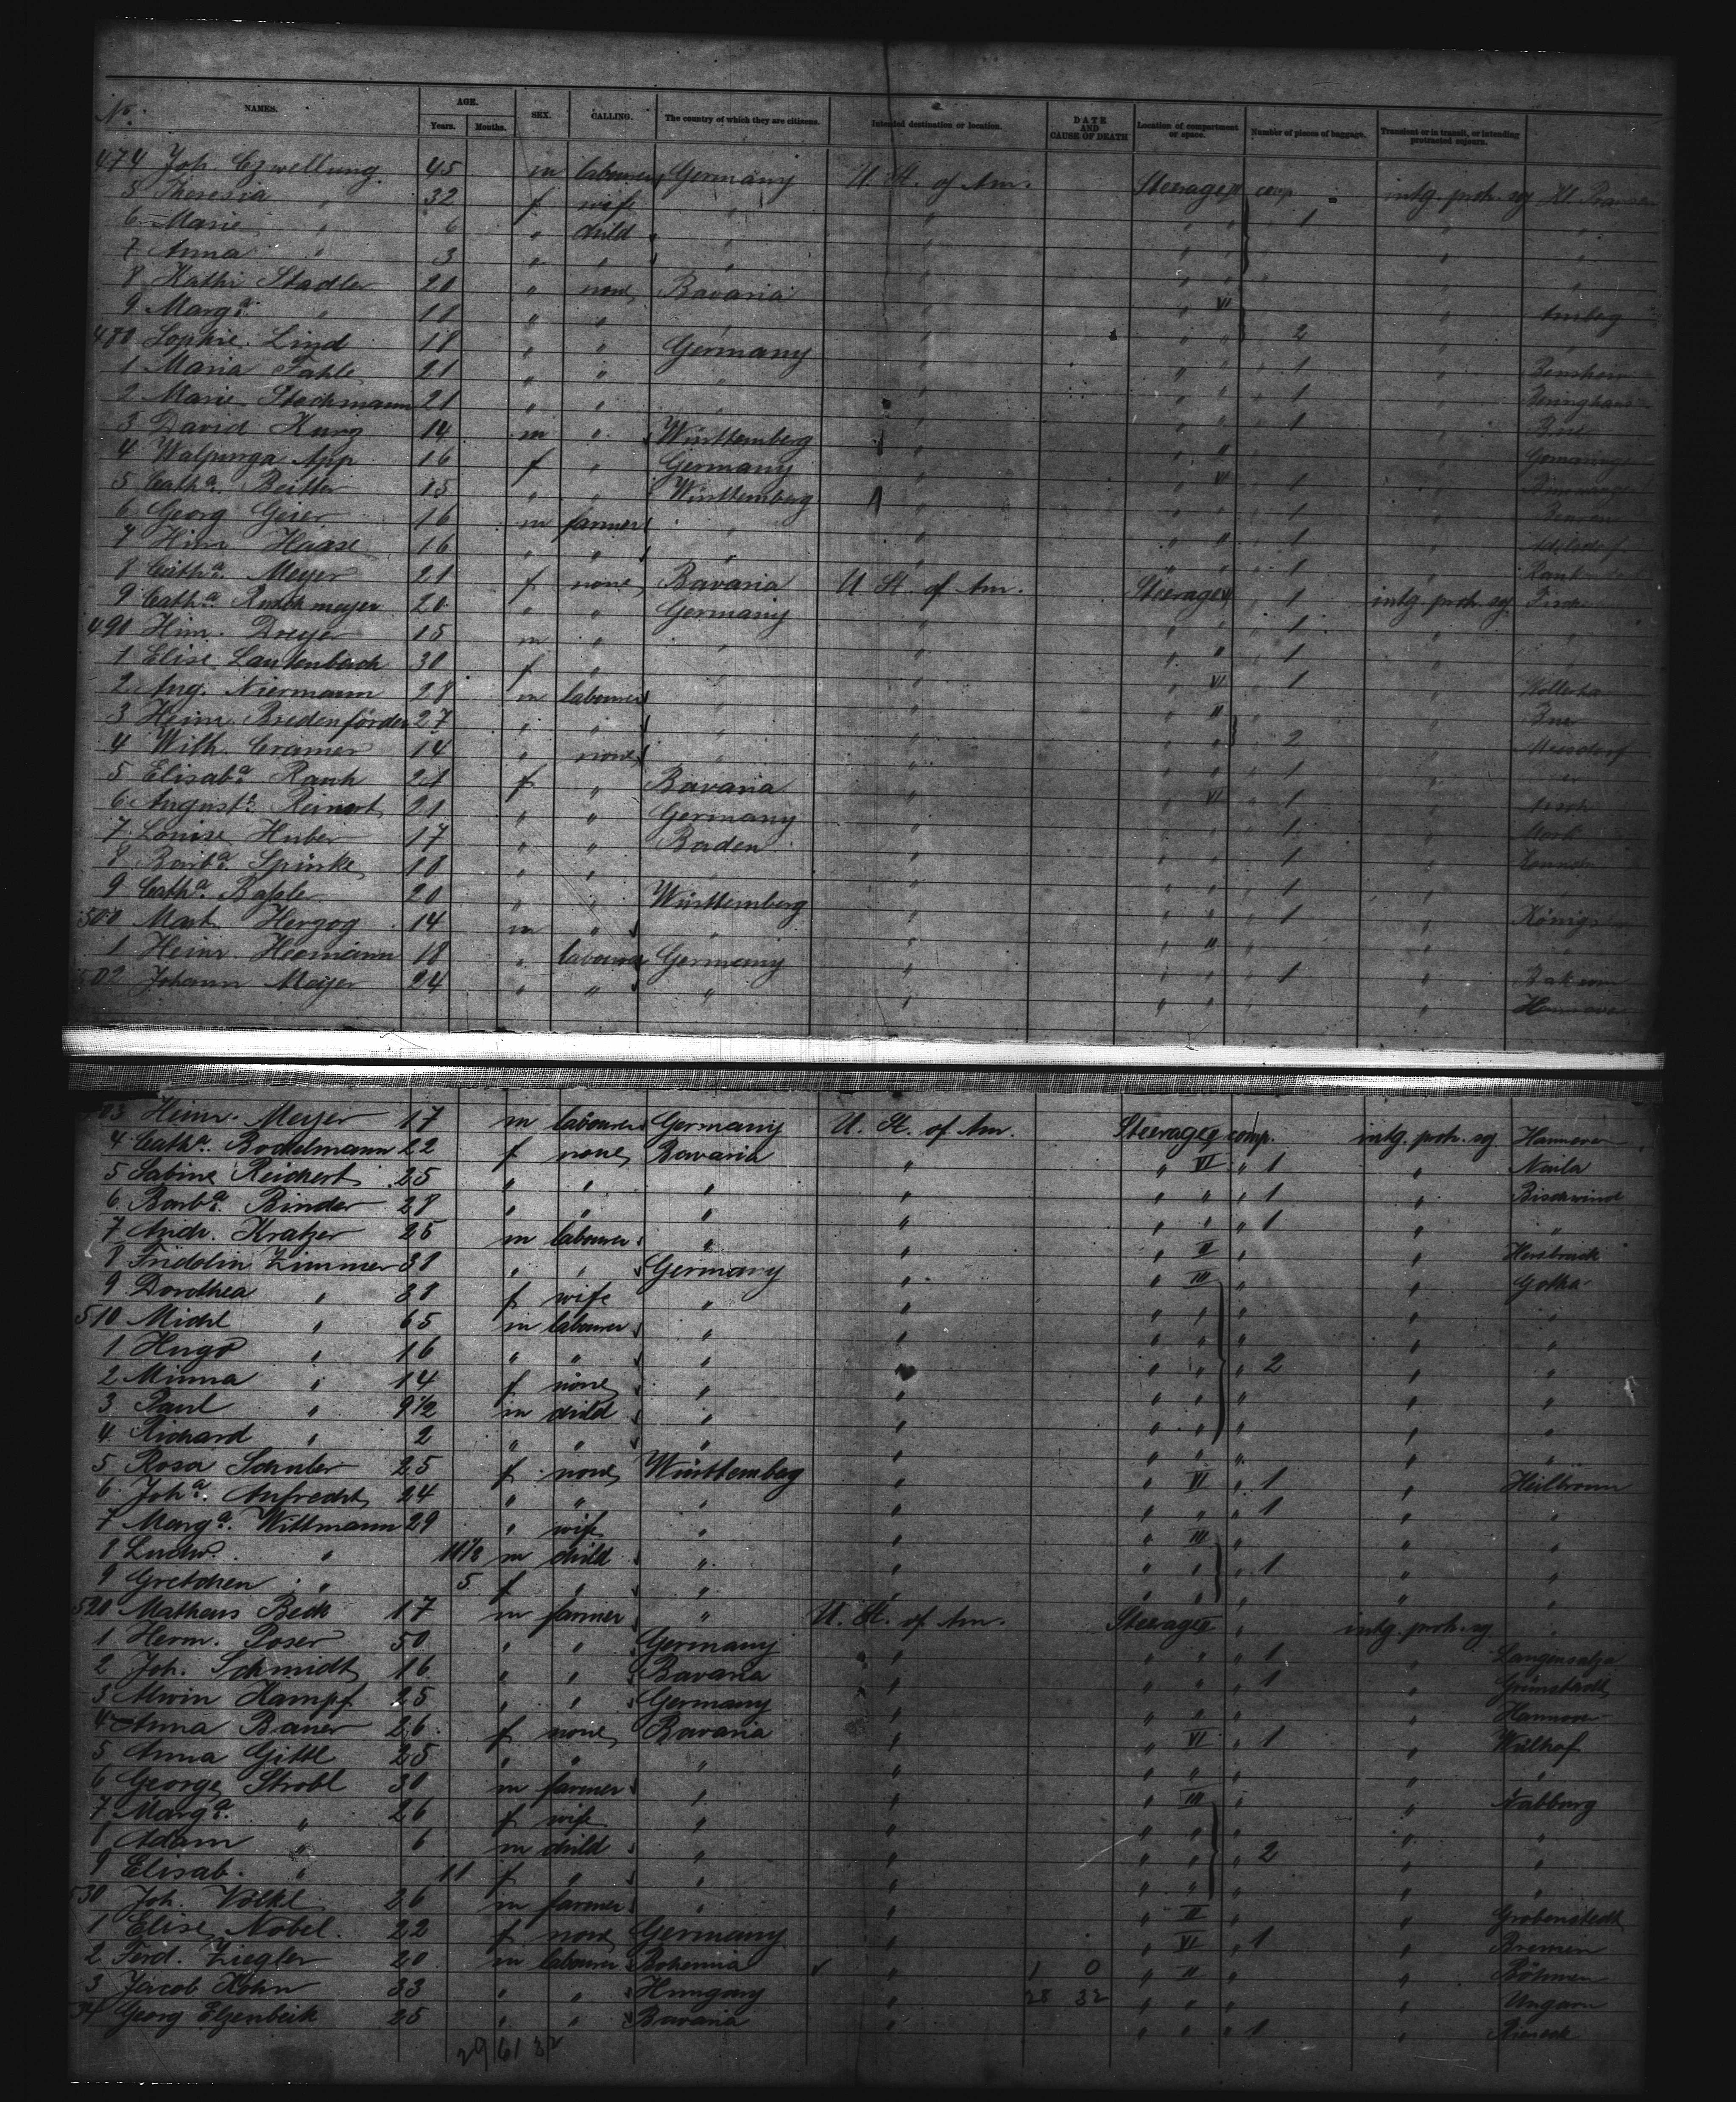 No. NAMES. AGE. Years. Months. SEX. CALLING. The country of which they are citizens. Intended destination or location. DATE AND CAUSE OF DEATH Location of compartment or space. Number of pieces of baggage. Transient or in transit, or intending protracted sojourn.
474 Joh. Czwellung 45 m labourer Germany U. St. of Am. Steerage II comp. intg. protr. soj
5 Theresia " 32 f wife " " " " 1 " "
6 Marie " 6 " child " " " " " "
7 Anna " 3 " " " " " " " "
8 Kathi Stadler 20 " none Bavaria " " VI " " Amberg
9 Marga. " 11 " " " " " " 2 " "
480 Sophie Lind 18 " " Germany " " " " 1 " Bensheim
1 Maria Fahle 21 " " " " " " " 1 "
2 Marie Stockmann 21 " " " " " " " 1 "
3 David Kurz 14 m " Württemberg " " II "
4 Walpurga App 16 f " Germany " " VI " 1 "
5 Catha. Beitter 15 " " Württemberg " " " " 1 "
6 Georg Geier 16 m farmer " " " II " 1 "
7 Hinr. Haase 16 " " " " " " " 1 "
8 Catha. Meyer 21 f none Bavaria U St. of Am. Steerage VI " 1 intg. protr. soj
9 Catha. Ruschmeyer 20 " " Germany " " " " 1 " "
490 Hinr. Dreyer 15 m " " " " II " 1 " "
1 Elise Lautenbach 30 f " " " " VI " 1 "
2 Aug. Niermann 28 m labourer " " " II " "
3 Heinr. Bredenförder 27 " " " " " " " 2 "
4 Wilh. Cramer 14 " none " " " " " 1 "
5 Elisaba. Rauh 21 f " Bavaria " " VI " 1 "
6 Augusta. Reinert 21 " " Germany " " " " 1 "
7 Louise Huber 17 " " Baden " " " " 1 "
8 Barba. Spinke 18 " " " " " " " 1 "
9 Catha. Baßler 20 " " Württemberg " " " " 1 "
500 Mart. Herzog 14 m " " " " II " " "
1 Heinr. Heemann 18 " labourer Germany " " " " 1 "
502 Johann Meyer 24 " " " " " " " " Hannover
503 Heinr. Meyer 17 m labourer Germany U. St. of Am. Steerage II comp. intg. protr. soj Hannover
4 Catha. Bockelmann 22 f none Bavaria " " VI " 1 " Naila
5 Sabine Reichert 25 " " " " " " " 1 " Bischwind
6 Barba. Binder 28 " " " " " " " 1 " "
7 Andr. Kratzer 25 m labourer " " " II " " Hersbruck
8 Fridolin Zimmer 38 " " Germany " " III " " Gotha
9 Dorothea " 38 f wife " " " " " " "
510 Michl " 65 m labourer " " " " " " "
1 Hugo " 16 " " " " " " " 2 " "
2 Minna " 14 f none " " " " " " "
3 Paul " 9 1/2 m child " " " " " " "
4 Richard " 2 " " " " " " " " "
5 Rosa Schuler 25 f none Württemberg " " VI " 1 " Heilbronn
6 Joha. Aufrecht 24 " " " " " " " 1 " "
7 Marga. Wittmann 29 " wife " " " III " " "
8 Ludw. " 1 1/2 m child " " " " " 1 " "
9 Gretchen " 5 f " " " " " " " "
520 Matheus Beck 17 m farmer " U. St. of Am. Steerage II " intg. protr. soj "
1 Herm. Poser 50 " " Germany " " " " 1 " Langensalza
2 Joh. Schmidt 16 " " Bavaria " " " " 1 " Grünstadt
3 Alwin Kampf 25 " " Germany " " " " " Hannover
4 Anna Bauer 26 f none Bavaria " " VI " 1 "
5 Anna Gittl 25 " " " " " " " " "
6 George Strobl 30 m farmer " " " III " " Nabburg
7 Marga. " 26 f wife " " " " " " "
8 Adam " 6 m child " " " " " 2 " "
9 Elisab. " 11 f " " " " " " " "
530 Joh. Völkl 26 m farmer " " " II " "
1 Elise Nobel 22 f none Germany " " VI " 1 " Bremen
2 Ferd. Ziegler 20 m labourer Bohemia " 1 0 " II " " Böhmen
3 Jacob Kohn 33 " " Hungary " 28 32 " " " " Ungarn
534 Georg Elzenbeik 25 " " Bavaria " " " " 1 " Rieneck
29 61 32